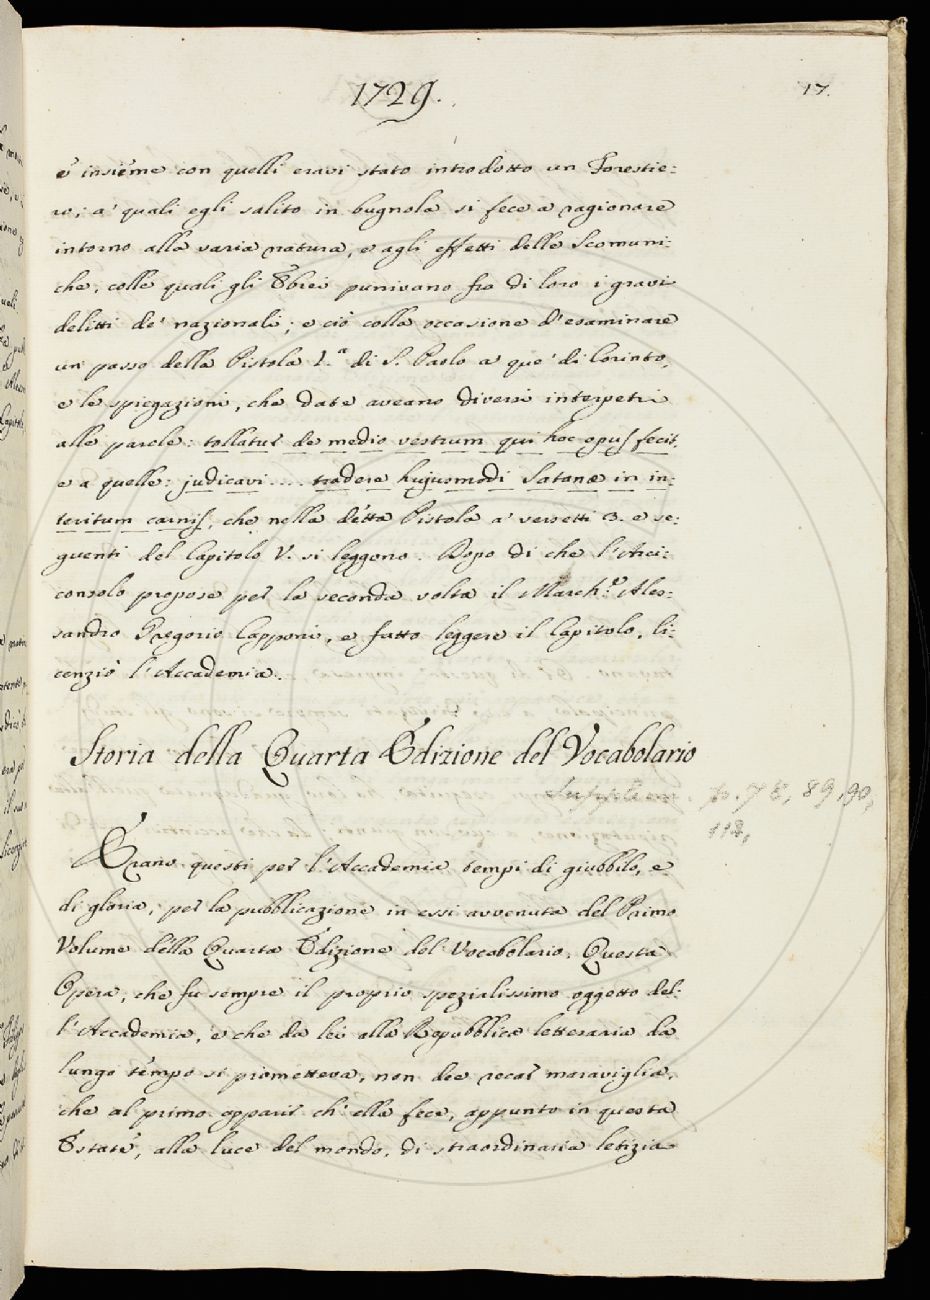 1729.
17.
e insieme con quelli eravi stato introdotto un Forestie:
ro; a' quali egli salito in bugnola si fece a ragionare
intorno alla varia natura, e agli effetti delle Scomuni:
che, colle quali gli Ebrei punivano fra di loro i gravi
delitti de' nazionali; e ciò colla occasione d'esaminare
un passo della Pistola I.ª di S. Paolo a que' di Corinto,
e le spiegazioni, che date aveano diversi interpetri
alle parole: tollatur de medio vestrum qui hoc opus fecit,
e a quelle: judicavi.... tradere hujusmodi Satanæ in in:
teritum carnis, che nella detta Pistola a' versetti 3. e se:
guenti del Capitolo V. si leggono. Dopo di che l'Arci:
consolo propose per la seconda volta il March.º Ales:
sandro Gregorio Capponi, e fatto leggere il Capitolo, li:
cenziò l'Accademia.
Storia della Quarta Edizione del Vocabolario
p. 78, 89, 90,
118,
Erano questi per l'Accademia tempi di giubbilo, e
di gloria, per la pubblicazione in essi avvenuta del Primo
Volume della Quarta Edizione del Vocabolario. Questa
Opera, che fu sempre il proprio spezialissimo oggetto del:
l'Accademia, e che da lei alla Repubblica letteraria da
lungo tempo si prometteva, non dee recar maraviglia,
che al primo apparir ch'ella fece, appunto in questa
Estate, alla luce del mondo, di straordinaria letizia